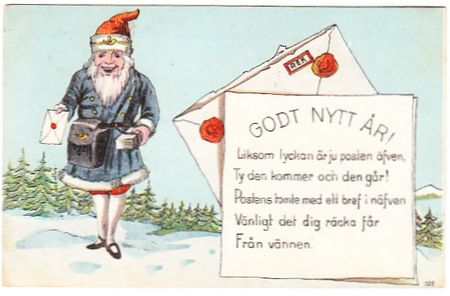 REK
GODT NYTT ÅR!
Liksom lyckan är ju posten äfven,
Ty den kommer och den går!
Postens tomte med ett bref i näfven
Vänligt det dig räcka får
Från vännen.